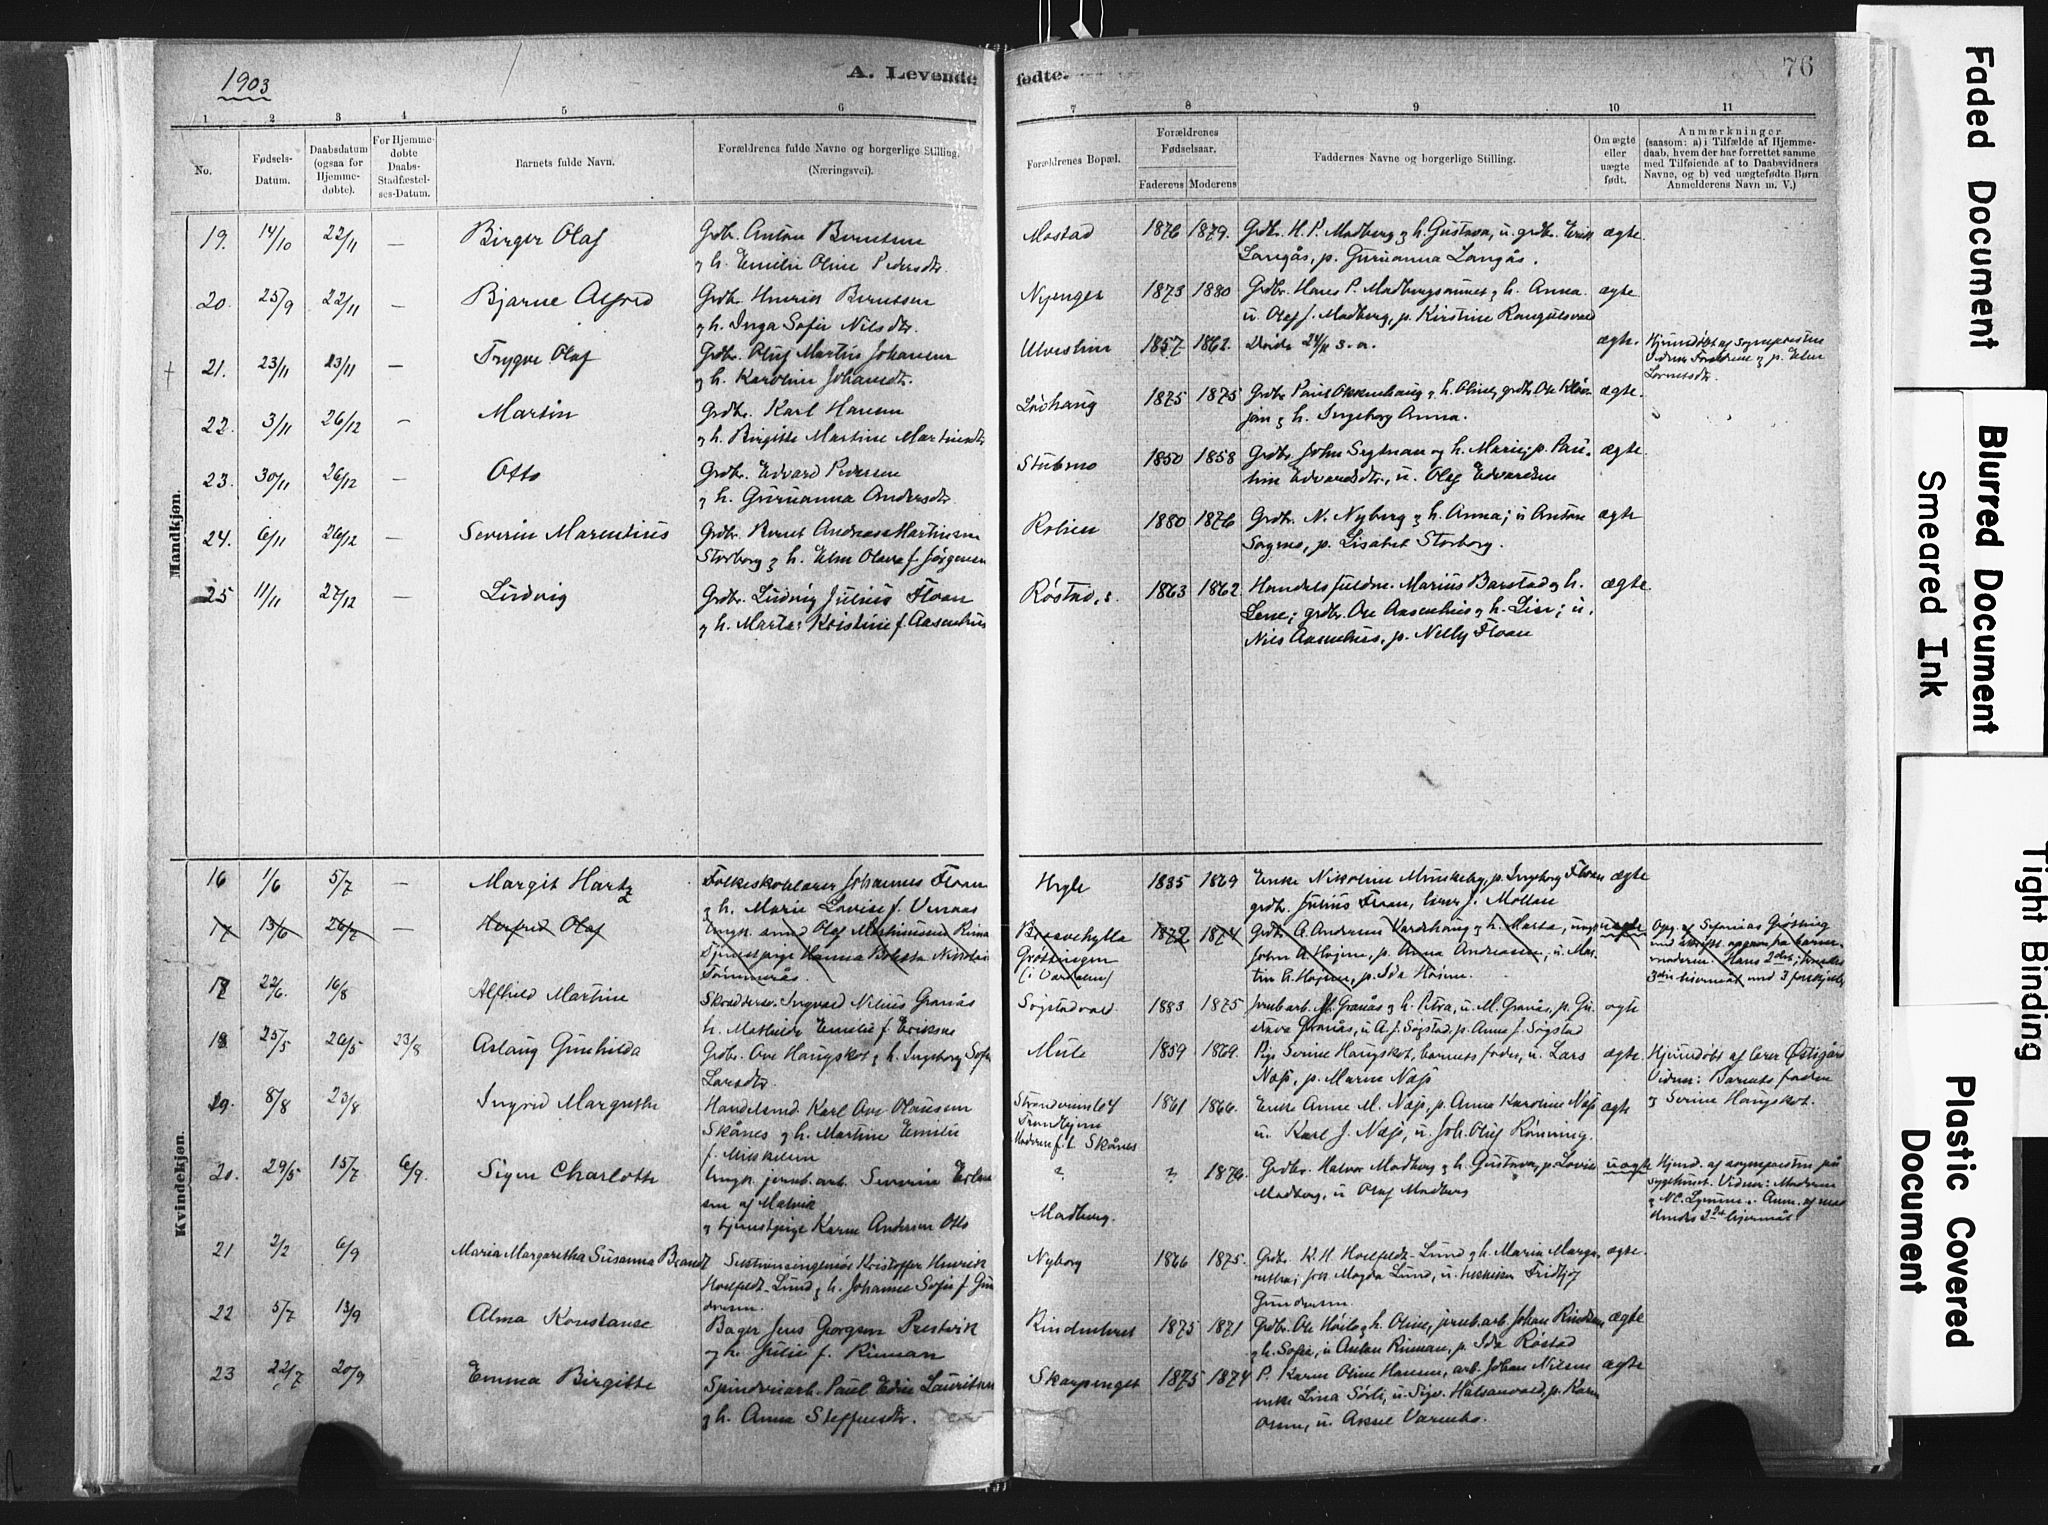 1903
A. Levende fødte.
76
1 2 3 4 5 6 7 8 9 10 11
No.
Fødsels-Datum.
Daabsdatum (ogsaa for Hjemme-døbte).
For Hjemme-døbte Daabs-Stadfæstel-ses-Datum.
Barnets fulde Navn.
Forældrenes fulde Navne og borgerlige Stilling. (Næringsvei).
Forældrenes Bopæl.
Forældrenes Fødselsaar.
Faderens Moderens
Faddernes Navne og borgerlige Stilling.
Om ægte eller uægte født.
Anmærkninger
(saasom: a) i Tilfælde af Hjemme-
daab, hvem der har forrettet samme
med Tilføiende af to Daabsvidners
Navne, og b) ved uægtefødte Børn
Anmelderens Navn m. V.)
Mandkjøn.
19. 14/10 22/11 — Birger Olaf Grdbr. Anton Berntsen Mostad 1876 1879. Grdbr. H. P. Madberg & h. Gustava, u. grdbr. Erik ægte.
& h. Emilie Oline Pedersdtr. Langås, p. Guruanna Langås.
20. 25/9 22/11 — Bjarne Alfred Grdbr. Henrik Berntsen Nyenget 1873 1880 Grdbr. Hans P. Madbergsaunet & h. Anna ægte
& h. Inga Sofie Nilsdtr. u. Olaf J. Madberg, p. Kirstine
21. 23/11 23/11 — Trygve Olaf Grdbr. Oluf Martin Johansen 1857 1862. Døde 24/11 s. a. ægte. Hjemmedøbt af Sognepresten
& h. Karoline Johansdtr. Vidner Forældrene & p. Elen
22. 3/11 26/12 — Martin Grdbr. Karl Hansen 1875 1875 Grdbr. Paul & h. Oline, grdbr. Ole ægte.
& h. Birgitte Martine Martinsdtr & h. Ingeborg Anna.
23. 30/11 26/12 — Otto Grdbr. Edvard Pedersen Stubmo 1850 1858 Grdbr. John & h. Marie, p. Pau- ægte
& h. Guruanna Andersdtr. line Edvardsdtr., u. Olaf Edvardsen
24. 6/11 26/12 — Severin Marentius Grdbr. Bernt Andreas Martinsen 1880 1876 Grdbr. N. Nyberg & h. Anna; u Anton ægte
Storborg & h. Elen Olava f. Jørgensen p. Lisabet Storborg.
25 11/11 27/12 — Ludvig Grdbr. Ludvig Julius Floan Røstad, s. 1863 1862. Handelsfuldm. Marius Barstad & h. ægte
& h. Marta Kristine f. Aasenhus Lene; grdbr. Ole Aasenhus & h. Lise; u.
Nils Aasenhus, p. Nelly Floan
Kvindekjøn.
16 1/6 5/7 — Margit Hartz Folkeskolelærer Johannes Floan 1885 1869 Enke Nikoline Munkeby, p. Ingeborg Floan ægte
& h. Marie Lovise f. Grdbr. Julius Floan, lærer J. Mollan
17 13/6 26/7 — Herfred Olaf Ungk. Olaf Martinussen 1872 1874 Grdbr. A. Andersen Vardehaug & h. Marta, uægte
Hanna Nikolai Grøttingen John A. Højem, p. Anna Andreasen, u. Mar-
Tømmerås. tin A. Højem, p. Ida Højem.
17 22/6. 16/8 Alfhild Martine Skrædder. Ingvald Nilius Granås Søgstadvald 1883 1875 Jernb.arb. M. Granås & h. Petra, u. M. Granås, p. Gu- ægte
h. Mathilde Emelie f. Eriksen stava Granås, u. A. J. Søgstad, p. Anne J. Søgstad
18 25/5 26/5 23/8 Aslaug Gunhilda Grdbr. Ove Haugskot & h. Ingeborg Sofie Mule 1859 1869. Pige Serine Haugskot, barnets fader, u. Lars ægte. Hjemdøbt af lærer Østigård
Larsdtr. Næss, p. Maren Næss Vidner: Barnets fader
19. 8/8 23/8 Ingrid Margrethe Handelsmd. Karl Ove Olaussen 1861 1866. Enke Anne M. Næss, p. Anna Karoline Næss ægte & Serine Haugskot.
Skånes & h. Martine Emilie Trondhjem u. Karl J. Næss, u. Joh. Oluf Rønning.
f. Mikkelsen Skånes
20. 29/5 15/7 6/9. Signe Charlotte Ungk. jernb.arb. Severin ? ? 1876. Grdbr. Halvor Madberg & h. Gustava, p. Lovise uægte Hjemd. af sognepresten på
sen af Malvik Madberg, u Olaf Madberg sygehuset. Vidner: Moderen
& tjenestpige Karen Andersen Otto Madberg.
21 2/2 6/9 Maria Margaretha Susanna Brandt Sektionsingeniør Kristoffer Henrik Nyborg 1866 1875. Grdbr. K. H. Hoelfeldt-Lund & h. Maria Marga- ægte.
Hoelfeldt-Lund & h. Johanne Sofie f. Gun- retha; frk Magda Lund, u. tekniker Fridtjof
dersen. Gundersen.
22 5/7 13/9 Alma Konstanse Bager Jens Georgsen Prestvik 1875 1871 Grdbr. Ole Høilo & h. Oline, jernb.arb. Johan ægte
& h. Julie f. Rinnan & h. Sofie, u Anton Rinnan, p. Ida Røstad
23 22/7 20/9 Emma Birgitte Paul Edin Lauritsen Skarpenget 1875 1874 P. Karen Oline Hansen, arb. Johan Nilsen ægte
& h. Anna Steffensdtr. enke Lina Sørli, u. Sigv. Halsanvald, p. Karen
Faded Document
Blurred Document
Smeared Ink
Tight Binding
Plastic Covered Document